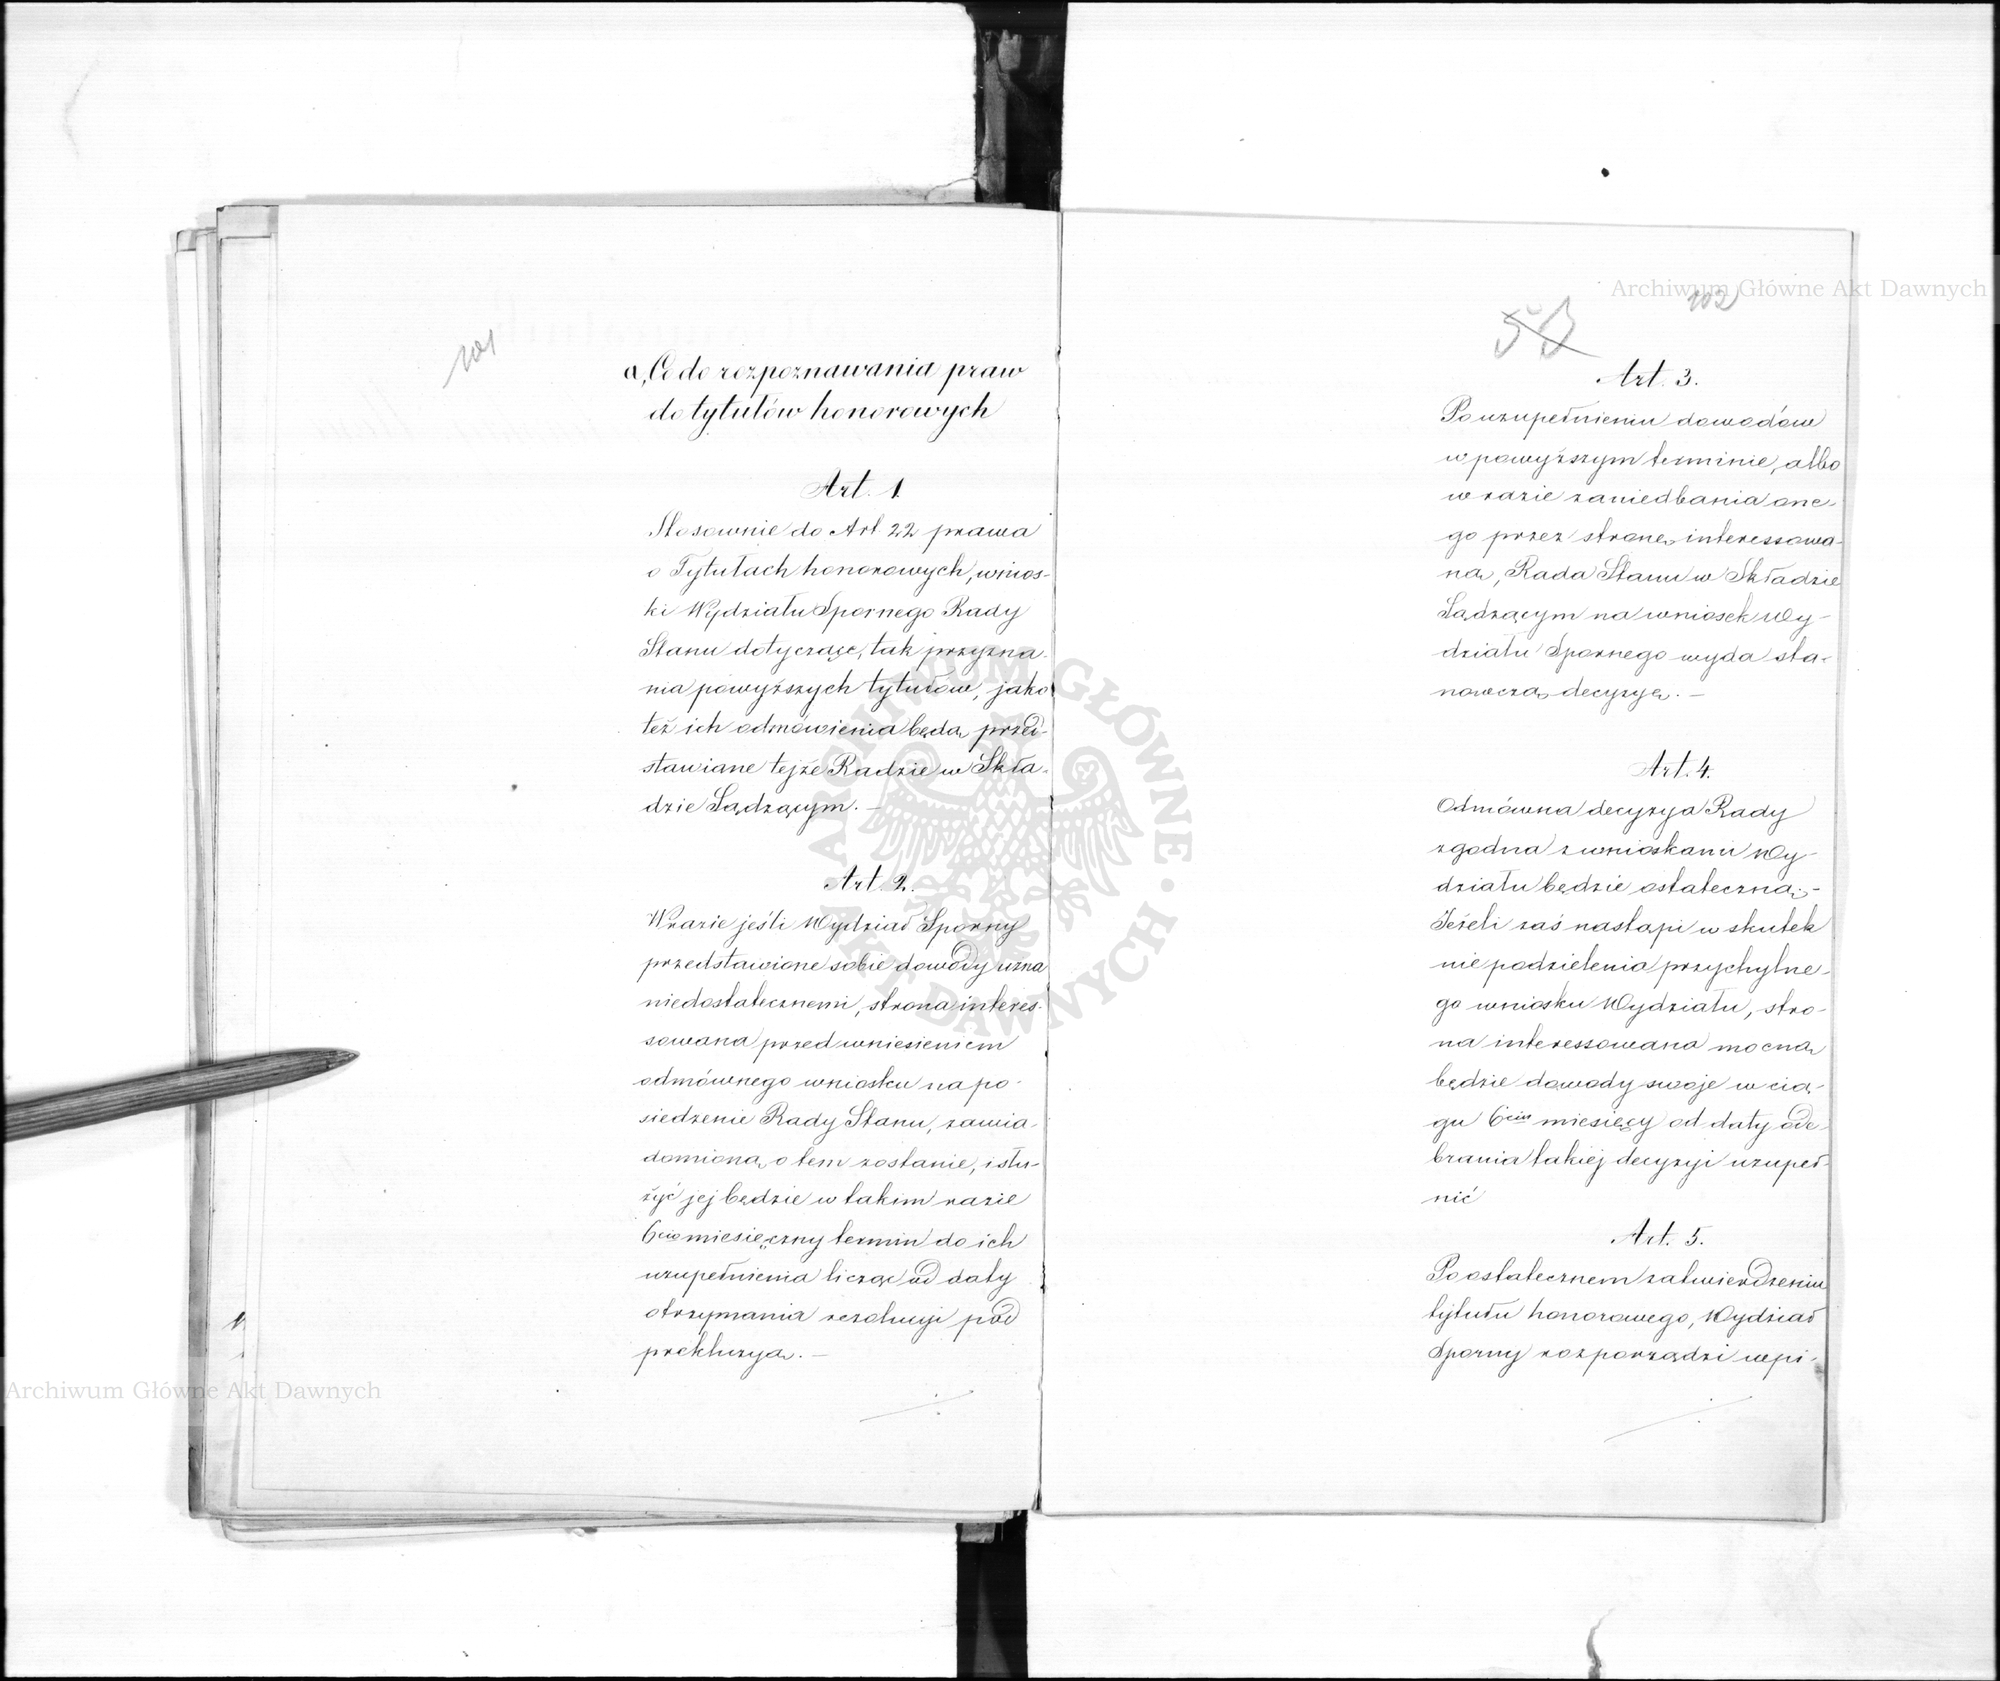 101
a, Co do rozpoznawania praw
do tytułów honorowych
Art. 1.
Stosownie do Art 22 prawa
o Tytułach honorowych, wnios-
ki Wydziału Spornego Rady
Stanu dotyczące, tak przyzna-
nia powyższych tytułów, jako
też ich odmówienia będą przed-
stawiane tejże Radzie w Skła-
dzie Sądzącym. —
Art. 2.
W razie jeśli Wydział Sporny
przedstawione sobie dowody uzna
niedostatecznemi, strona interes-
sowana przed wniesieniem
odmównego wniosku na po-
siedzenie Rady Stanu, zawia-
domioną o tem zostanie, i słu-
żyć jej będzie w takim razie
6cio miesięczny termin do ich
uzupełnienia licząc od daty
otrzymania rezolucyi pod
prekluzyą. —
102
53
Art. 3.
Po uzupełnieniu dowodów
w powyższym terminie, albo
w razie zaniedbania one-
go przez stronę interessowa-
ną, Rada Stanu w Składzie
Sądzącym na wniosek Wy-
działu Spornego wyda sta-
nowczą decyzyę. —
Art. 4.
Odmówna decyzya Rady
zgodna z wnioskami Wy-
działu będzie ostateczną. -
Jeżeli zaś nastąpi w skutek
nie podzielenia przychylne-
go wniosku Wydziału, stro-
na interessowana mocną
będzie dowody swoje w cią-
gu 6ciu miesięcy od daty ode-
brania takiéj decyzyi uzupeł-
nić
Art. 5.
Po ostatecznem zatwierdzeniu
tytułu honorowego, Wydział
Sporny rozporządzi wpi-
Archiwum Główne Akt Dawnych
Archiwum Główne Akt Dawnych
ARCHIWUM GŁÓWNE AKT DAWNYCH